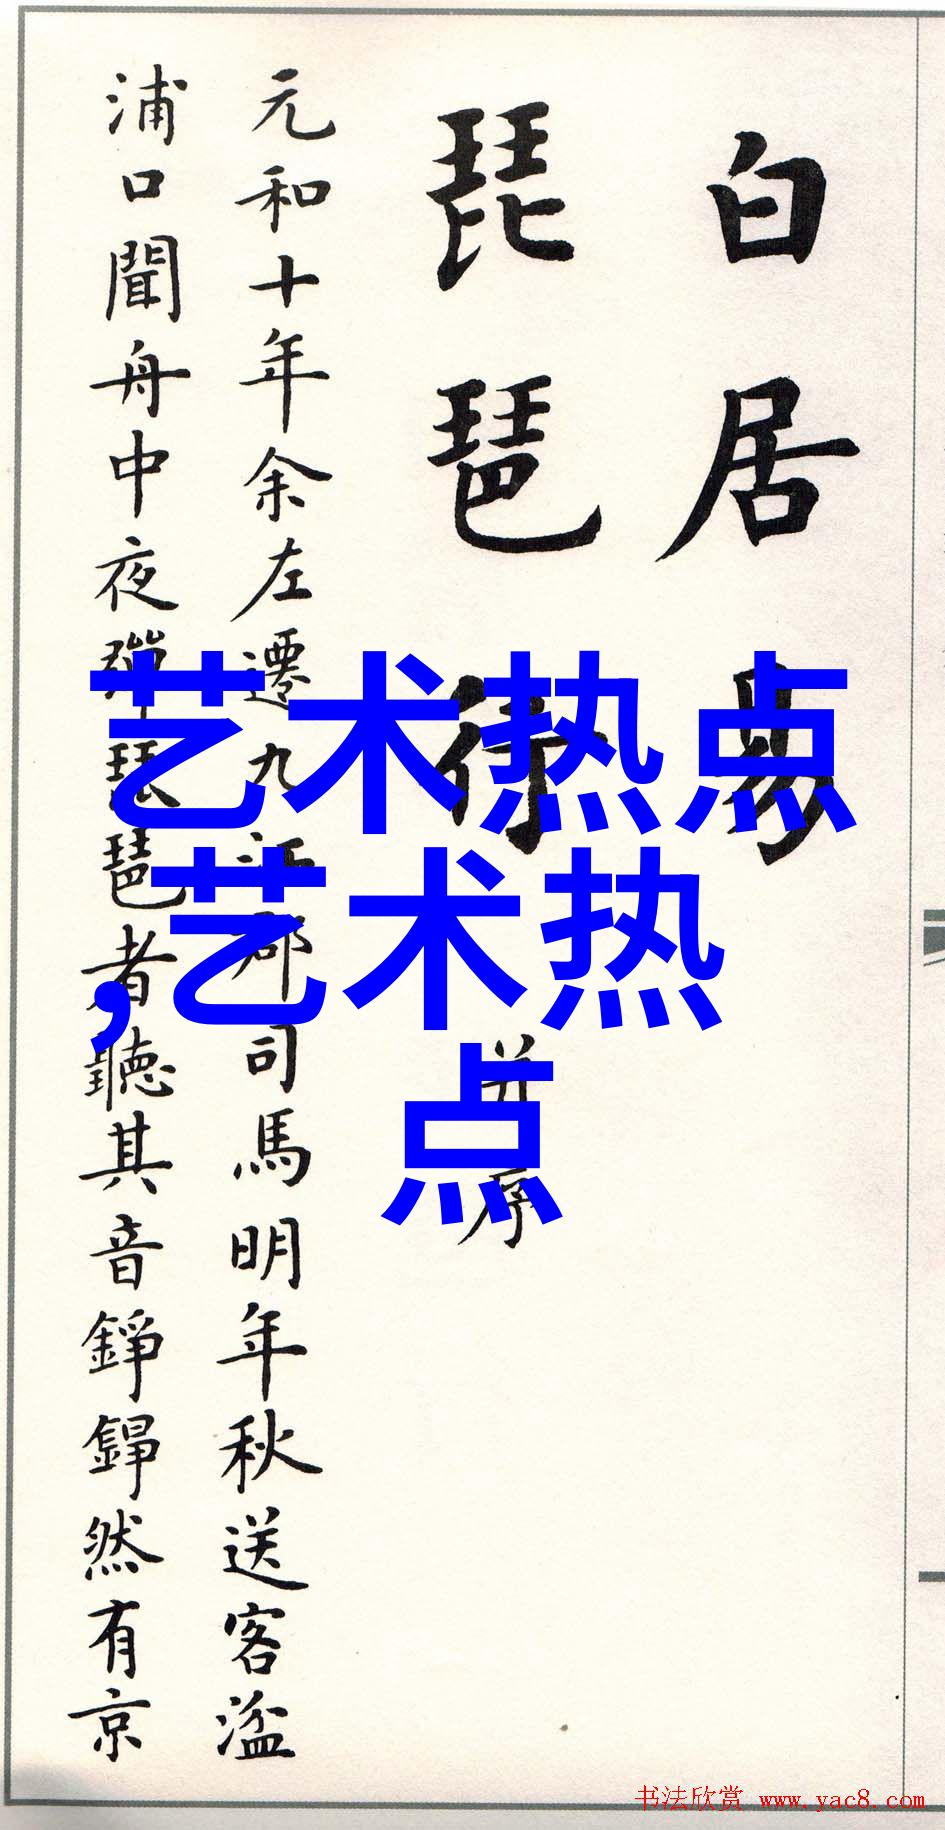 白居易
琵琶行 并序
元和十年余左遷九江郡司馬明年秋送客湓
浦口聞舟中夜彈琵琶者聽其音錚錚然有京
艺术热点
,艺术热
点
书法欣赏 www.yac8.com